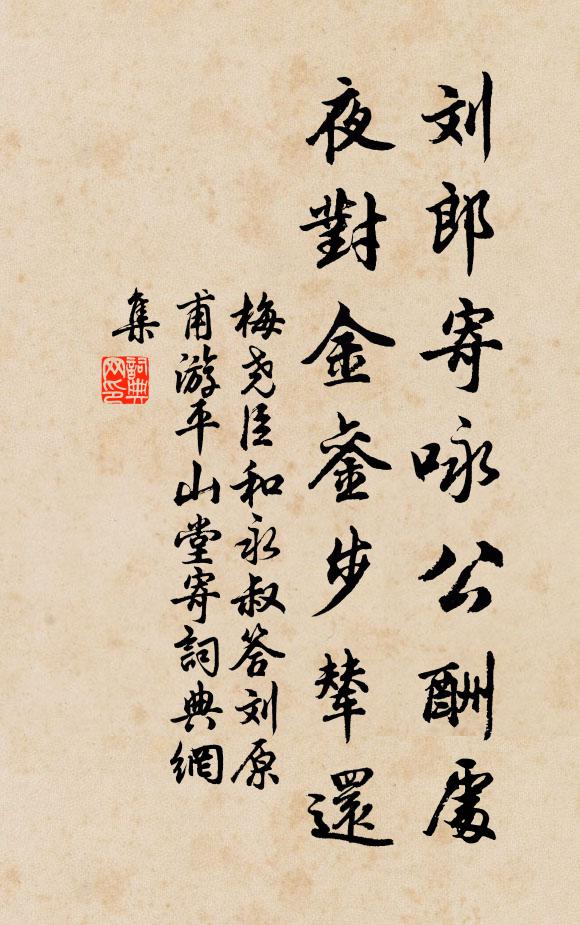 刘郎寄咏公酬處
夜對金銮步輦還
梅尧臣和永叔答刘原
甫游平山堂寄詞典網
集
詞典网印